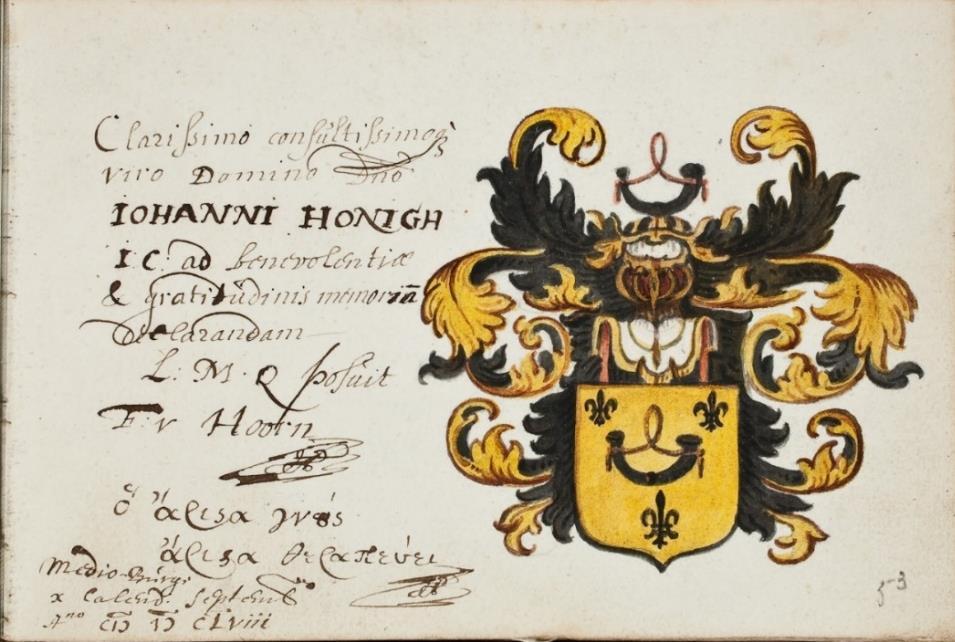 Clarissimo consultissimoq́
viro Domino Dnō
IOHANNI HONIGH
I.C. ad benevolentiæ
& gratitudinis memoriā
declarandam
L. M. Q posuit
F. v Hoorn
ὁ ἄριϛα γνοὺς
ἄριϛα θεραπεύει
Medio-Burgi
x Calend. Septemb
Aⁿᵒ CIƆ IƆ CLVIII
53